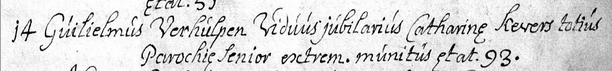 etat. 51
14 Guilielmus Verhulpen Viduus jubilarius Catharinę Kevers totius
Parochie senior extrem. munitus ętat. 93.